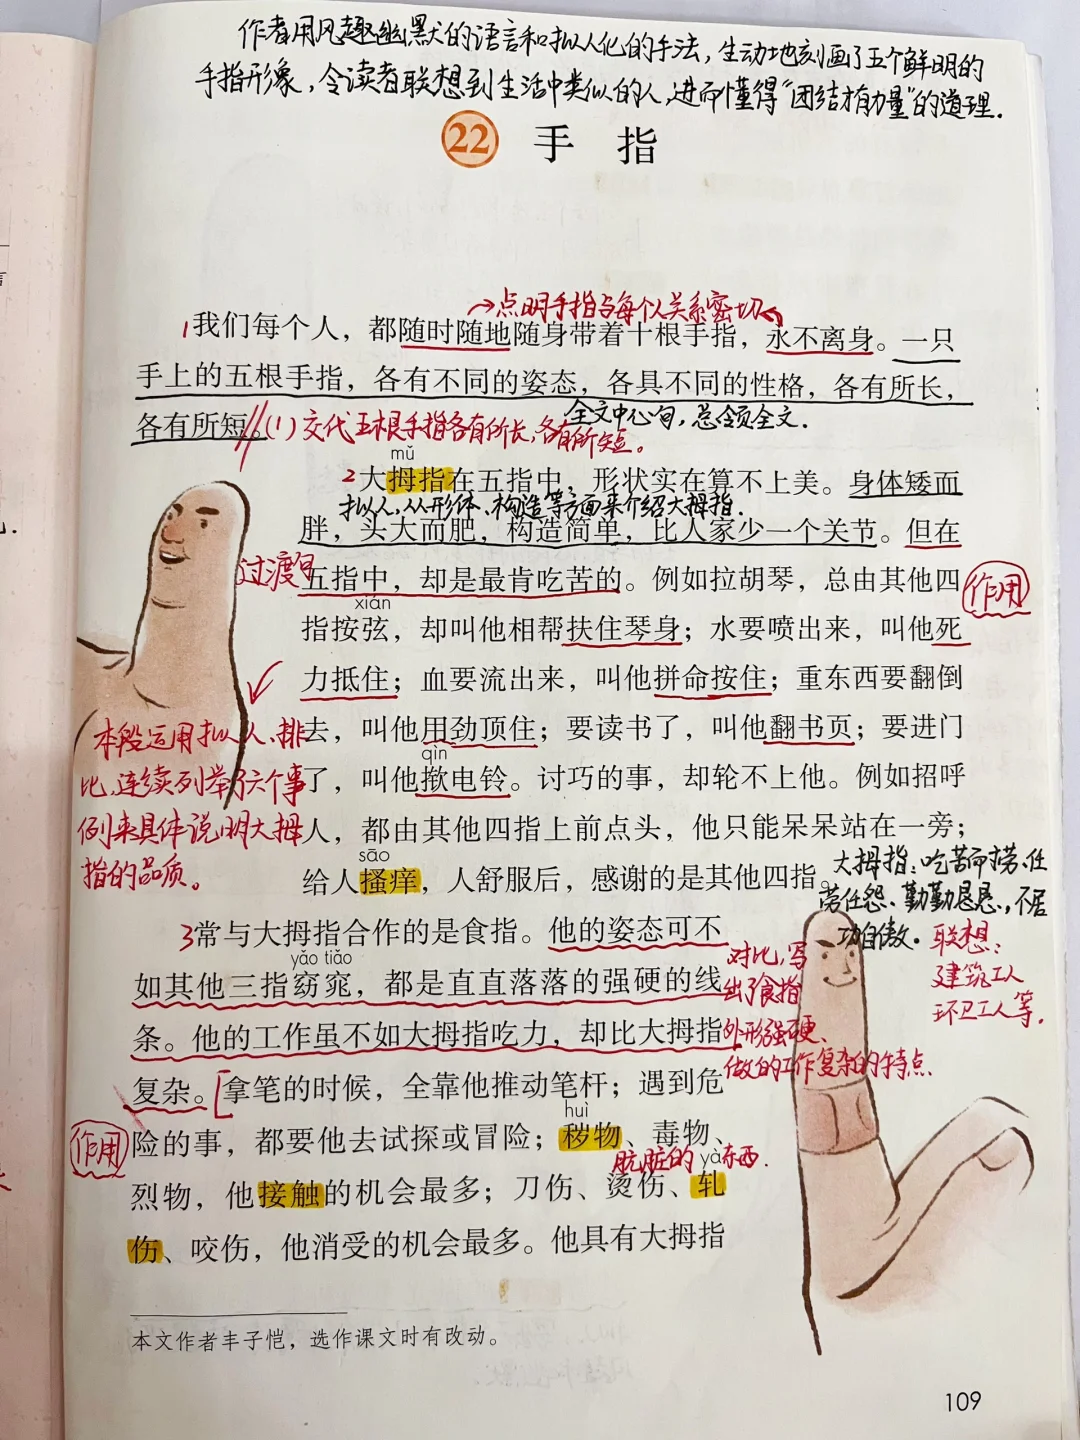 作者用风趣幽默的语言和拟人化的手法，生动地刻画了五个鲜明的
手指形象，令读者联想到生活中类似的人，进而懂得“团结才有力量”的道理．
22 手 指
→点明手指与每个人关系密切
1我们每个人，都随时随地随身带着十根手指，永不离身。一只
手上的五根手指，各有不同的姿态，各具不同的性格，各有所长，
各有所短。
(1) 交代五根手指各有所长，各有所短。
全文中心句，总领全文．
mǔ
2大拇指在五指中，形状实在算不上美。身体矮而
拟人，从形体、构造等方面来介绍大拇指．
胖，头大而肥，构造简单，比人家少一个关节。但在
过渡句
五指中，却是最肯吃苦的。例如拉胡琴，总由其他四
作用
xián
指按弦，却叫他相帮扶住琴身；水要喷出来，叫他死
力抵住；血要流出来，叫他拼命按住；重东西要翻倒
去，叫他用劲顶住；要读书了，叫他翻书页；要进门
qìn
了，叫他揿电铃。讨巧的事，却轮不上他。例如招呼
人，都由其他四指上前点头，他只能呆呆站在一旁；
sāo
给人搔痒，人舒服后，感谢的是其他四指。
本段运用拟人、排
比，连续列举了六个事
例来具体说明大拇
指的品质。
大拇指：吃苦而捞、任
劳任怨、勤勤恳恳，不居
功自傲．
联想：
建筑工人
环卫工人等．
3常与大拇指合作的是食指。他的姿态可不
yǎo tiǎo
如其他三指窈窕，都是直直落落的强硬的线
条。他的工作虽不如大拇指吃力，却比大拇指
复杂。拿笔的时候，全靠他推动笔杆；遇到危
对比，写
出了食指
外形强硬、
做的工作复杂的特点．
作用
huì
险的事，都要他去试探或冒险；秽物、毒物、
肮脏的东西．
yà
烈物，他接触的机会最多；刀伤、烫伤、轧
伤、咬伤，他消受的机会最多。他具有大拇指
本文作者丰子恺，选作课文时有改动。
109